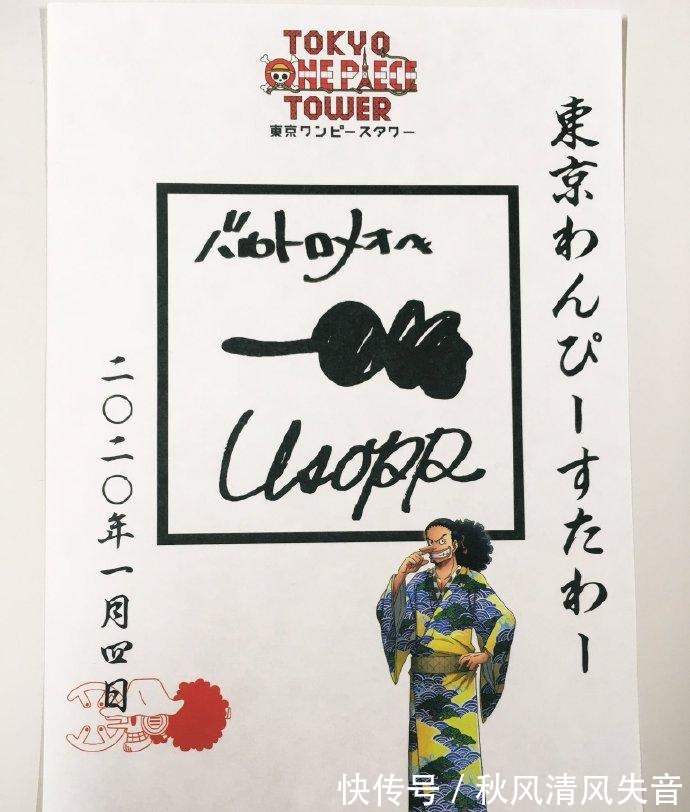 TOKYO
ONE PIECE
TOWER
東京ワンピースタワー
東京わんぴーすたわー
バルトロメオへ
Usopp
二〇二〇年一月四日
快传号 / 秋风清风失音